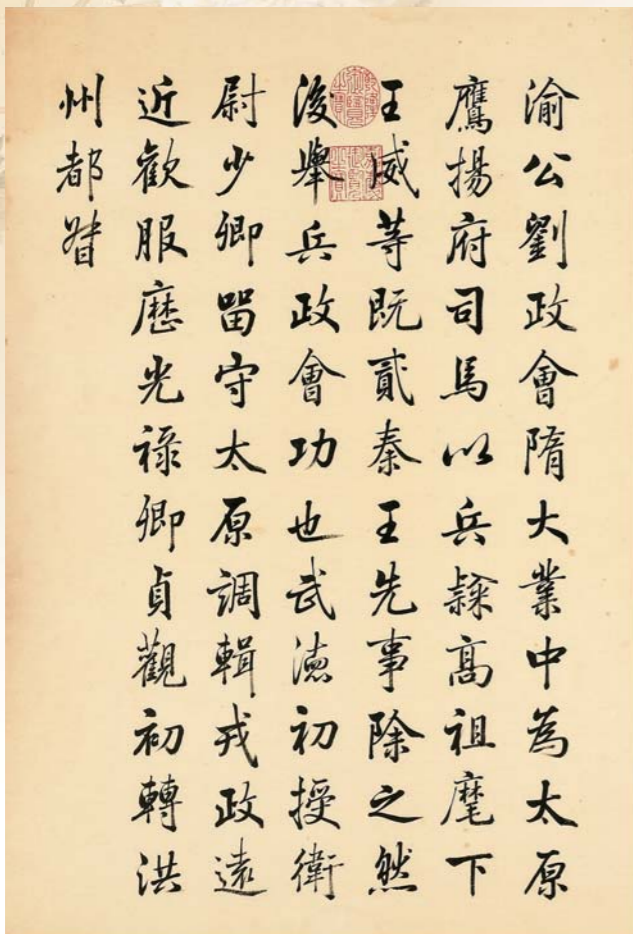 渝公劉政會隋大業中為太原
鷹揚府司馬以兵隸髙祖麾下
王威等既貳秦王先事除之然
後舉兵政會功也武徳初授衛
尉少卿留守太原調輯戎政遠
近歡服歷光禄卿貞觀初轉洪
州都督